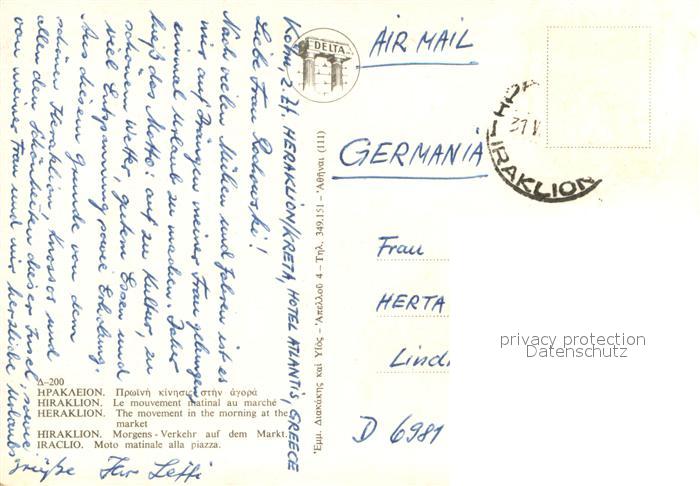 Köln, z.Zt. HERAKLION/KRETA, HOTEL ATLANTIS, GREECE
Liebe Frau Rochowski!
Nach vielen Mühen und Jahren ist es
mir auf Drängen meiner Frau gelungen,
einmal Urlaub zu machen. Daher
hieß das Motto: auf zu Kultur, zu
schönem Wetter, gutem Essen und
viel Entspannung sowie Erholung.
Aus diesem Grunde von dem
schönen Heraklion, Knossos und
allen den Schönheiten dieser Insel, sowie
von meiner Frau und mir herzliche Urlaubs
grüße Ihr
DELTA
AIR MAIL
GERMANIA
IRAKLION
Frau
HERTA
Lindl
D 6981
Δ-200
ΗΡΑΚΛΕΙΟΝ. Πρωϊνὴ κίνησις στὴν ἀγορά
HIRAKLION. Le mouvement matinal au marché
HERAKLION. The movement in the morning at the
market
HIRAKLION. Morgens-Verkehr auf dem Markt.
IRACLIO. Moto matinale alla piazza.
Ἐμμ. Διακάκης καὶ Υἱός - Ἀπελλοῦ 4 - Τηλ. 349.151 - Ἀθῆναι (111)
privacy protection
Datenschutz